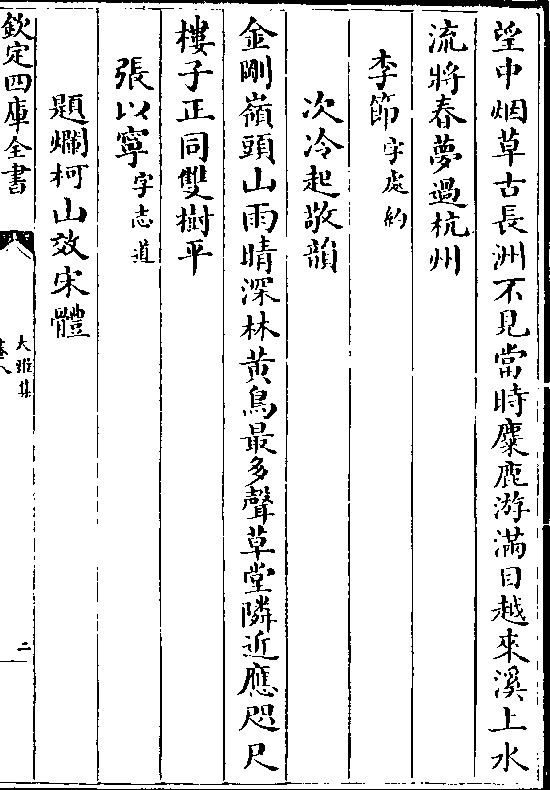 望中烟草古長洲不見當時麋鹿游滿目越來溪上水
流將春夢過杭州
李節字處約
次冷起敬韻
金剛嶺頭山雨晴深林黄鳥最多聲草堂隣近應咫尺
樓子正同雙樹平
張以寧字志道
題爛柯山效宋體
欽定四庫全書
大雅集
卷八
二